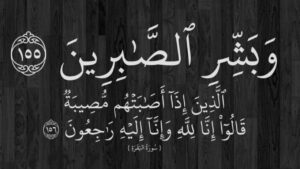 وَبَشِّرِ ٱلصَّـٰبِرِينَ ١٥٥
ٱلَّذِينَ إِذَآ أَصَـٰبَتْهُم مُّصِيبَةٌ
قَالُوٓا۟ إِنَّا لِلَّهِ وَإِنَّآ إِلَيْهِ رَٰجِعُونَ ١٥٦
[ سُورَةُ البَقَرَةِ ]